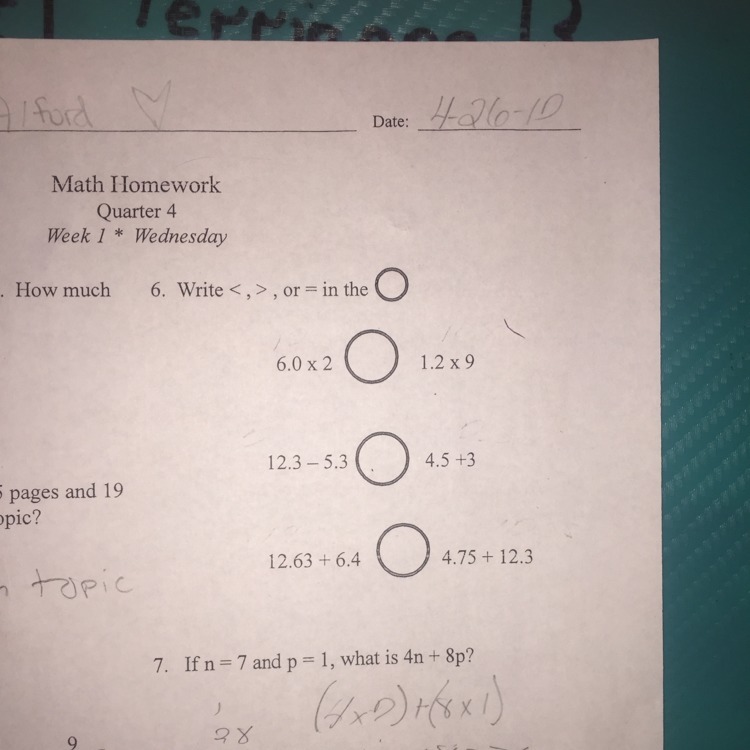 Alford
Date: 4-26-1
Math Homework
Quarter 4
Week 1 * Wednesday
. How much
6. Write < , > , or = in the
6.0 x 2 1.2 x 9
12.3 – 5.3 4.5 +3
5 pages and 19
opic?
12.63 + 6.4 4.75 + 12.3
n topic
7. If n = 7 and p = 1, what is 4n + 8p?
(4x7)+(8x1)
28
9